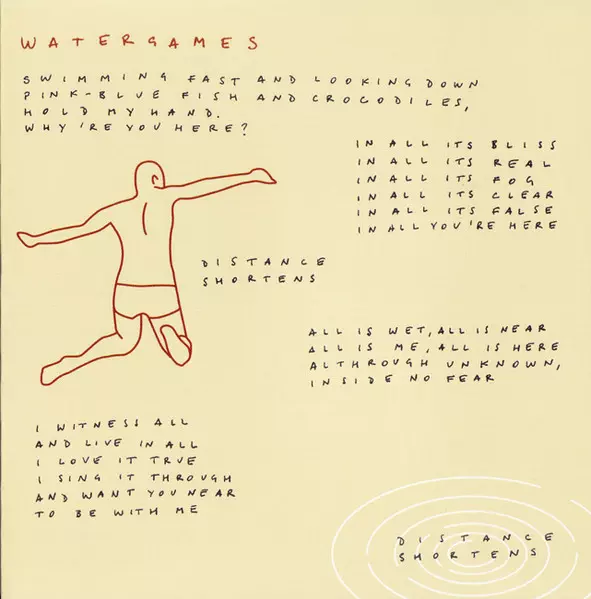 WATERGAMES
SWIMMING FAST AND LOOKING DOWN
PINK-BLUE FISH AND CROCODILES,
HOLD MY HAND.
WHY'RE YOU HERE?
IN ALL ITS BLISS
IN ALL ITS REAL
IN ALL ITS FOG
IN ALL ITS CLEAR
IN ALL ITS FALSE
IN ALL YOU'RE HERE
DISTANCE
SHORTENS
ALL IS WET, ALL IS NEAR
ALL IS ME, ALL IS HERE
ALTHROUGH UNKNOWN,
INSIDE NO FEAR
I WITNESS ALL
AND LIVE IN ALL
I LOVE IT TRUE
I SING IT THROUGH
AND WANT YOU NEAR
TO BE WITH ME
DISTANCE
SHORTENS